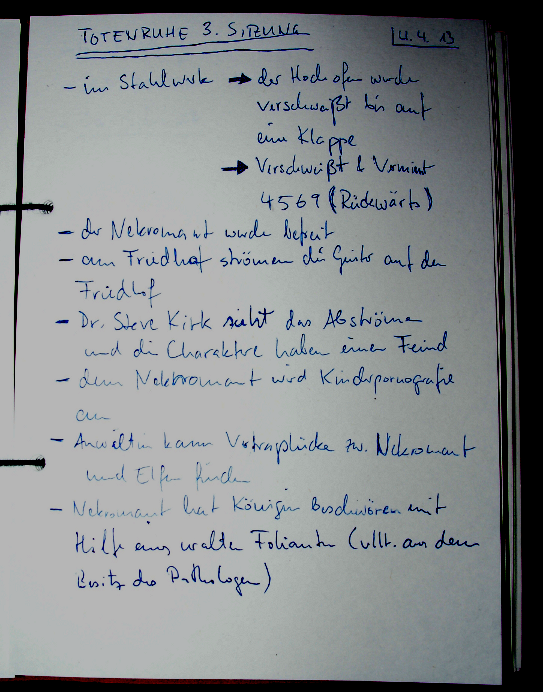 TOTENRUHE 3. SITZUNG
4.4.13
- im Stahlwerk → der Hochofen wurde
verschweißt bis auf
eine Klappe
→ Verschweißt & Vermint
4569 (Rückwärts)
- der Nekromant wurde befreit
- am Friedhof strömen die Geister auf den
Friedhof
- Dr. Steve Kirk sieht das Abströmen
und die Charaktere haben einen Feind
- dem Nekromant wird Kinderpornografie
an
- Anwältin kann Vertragslücke zw. Nekromant
und Elfen finden
- Nekromant hat Königin Beschwören mit
Hilfe eines uralten Folianten (vllt. aus dem
Besitz des Pathologen)